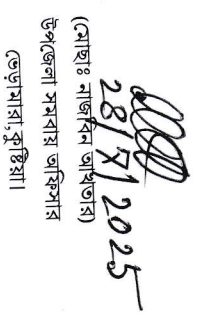 28/7/2025
(মোছাঃ নাজনিন আখতার)
উপজেলা সমবায় অফিসার
ভেড়ামারা, কুষ্টিয়া।